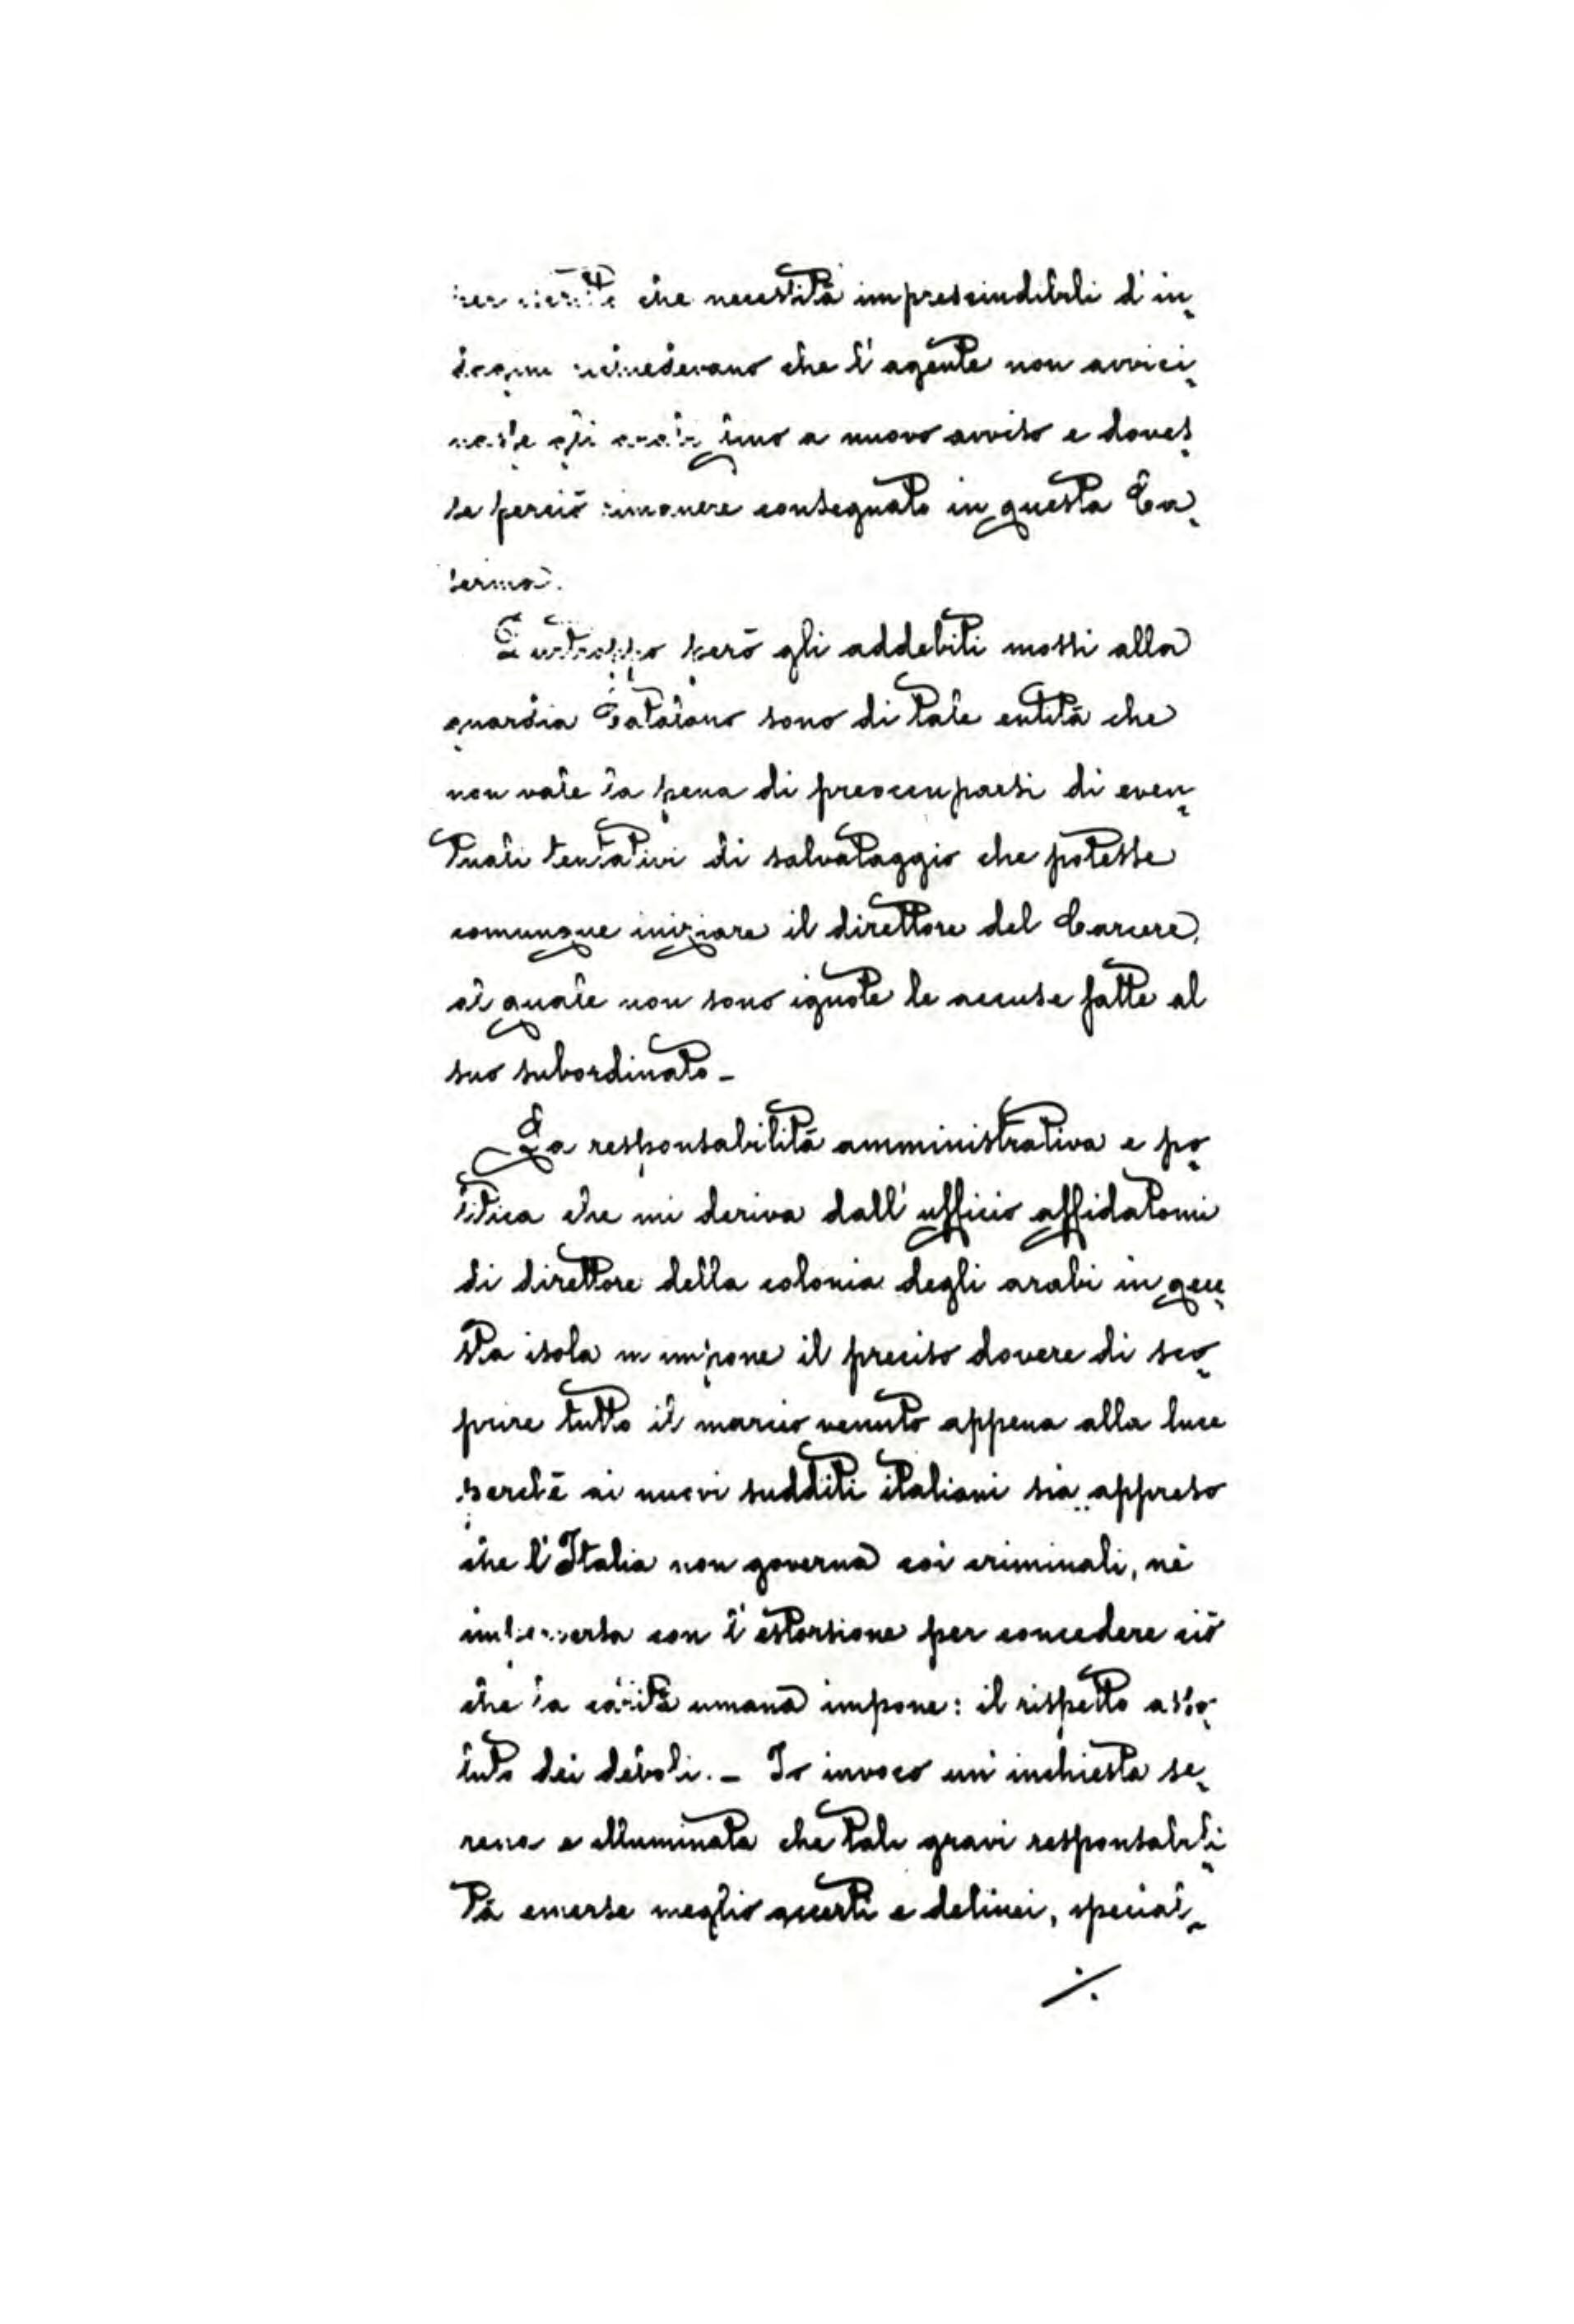 che necessità imprescindibili d'in-
dagini richiedevano che l'agente non avvici-
nasse gli arabi fino a nuovo avviso e doves-
se perciò rimanere consegnato in questa Ca-
serma.
Purtroppo però gli addebiti mossi alla
guardia Catalano sono di tale entità che
non vale la pena di preoccuparsi di even-
tuali tentativi di salvataggio che potesse
comunque iniziare il direttore del Carcere,
al quale non sono ignote le accuse fatte al
suo subordinato -
La responsabilità amministrativa e po-
litica che mi deriva dall'ufficio affidatomi
di direttore della colonia degli arabi in que-
sta isola m'impone il preciso dovere di sco-
prire tutto il marcio venuto appena alla luce
perchè ai nuovi sudditi italiani sia appreso
che l'Italia non governa coi criminali, nè
con l'estorsione per concedere ciò
che la carità umana impone: il rispetto asso-
luto dei deboli. - Io invoco un'inchiesta se-
rena e illuminata che tali gravi responsabili-
tà emerse meglio accerti e delinei, special-
./.